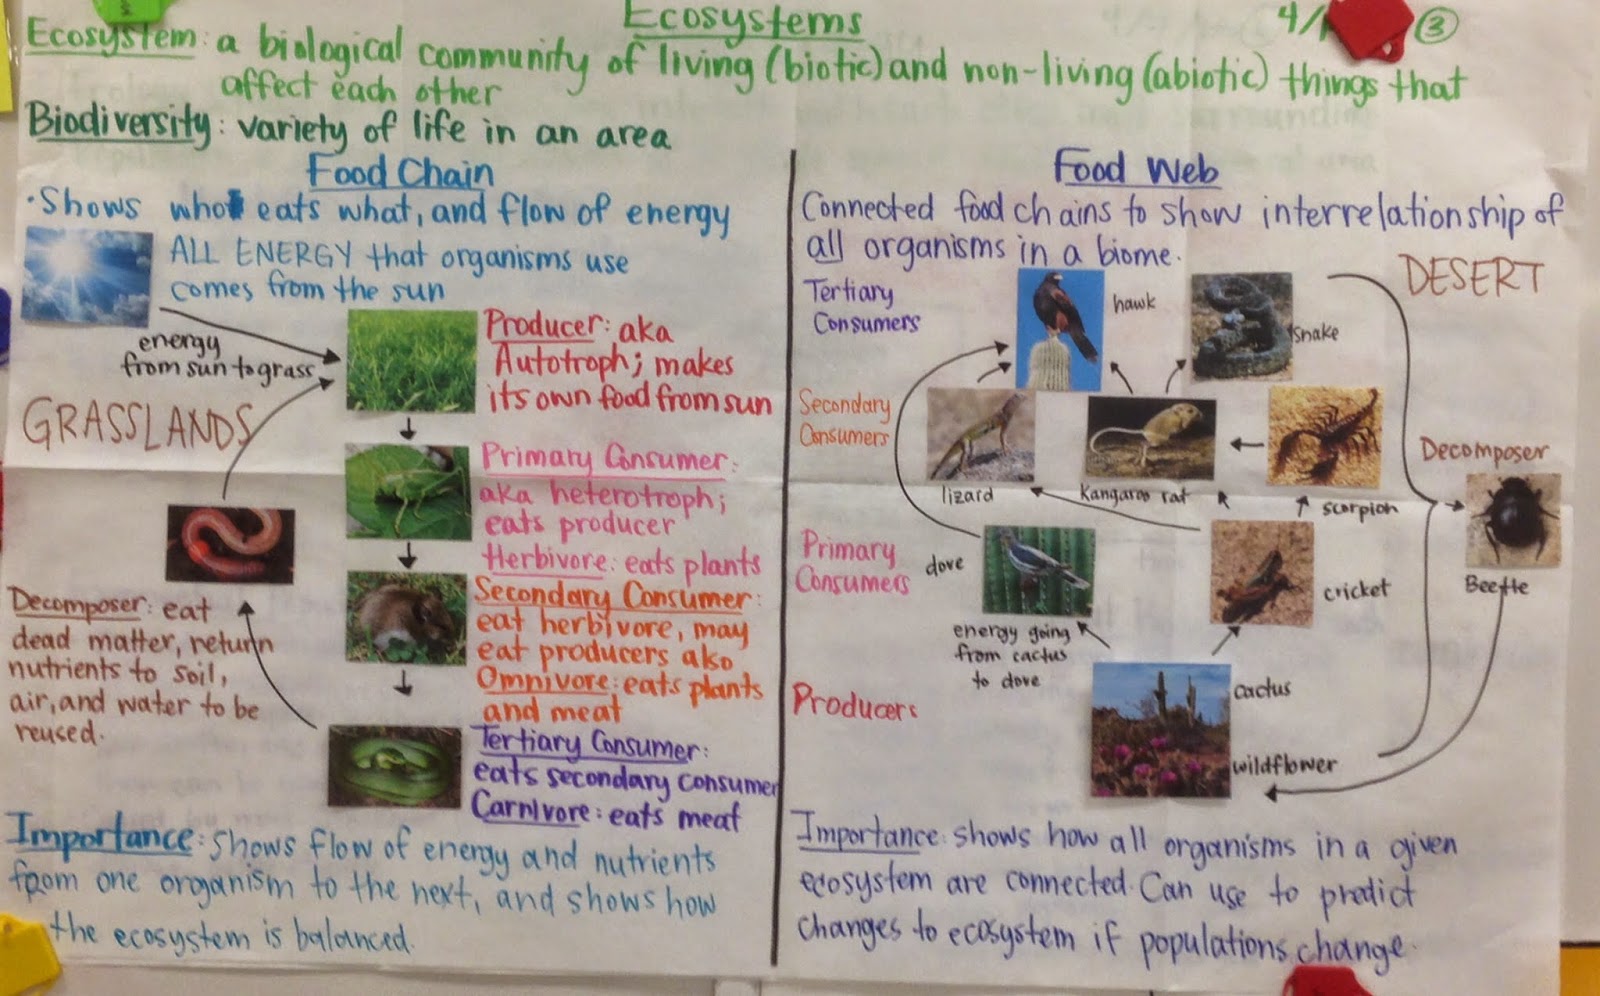 Ecosystems
4/
3
Ecosystem: a biological community of living (biotic) and non-living (abiotic) things that
affect each other
Biodiversity: variety of life in an area
Food Chain
·Shows who eats what, and flow of energy
ALL ENERGY that organisms use
comes from the sun
energy
from sun to grass
GRASSLANDS
Producer: aka
Autotroph; makes
its own food from sun
Primary Consumer:
aka heterotroph;
eats producer
Herbivore: eats plants
Secondary Consumer:
eat herbivore, may
eat producers also
Omnivore: eats plants
and meat
Tertiary Consumer:
eats secondary consumer
Carnivore: eats meat
Decomposer: eat
dead matter, return
nutrients to soil,
air, and water to be
reused.
Importance: Shows flow of energy and nutrients
from one organism to the next, and shows how
the ecosystem is balanced.
Food Web
Connected food chains to show interrelationship of
all organisms in a biome.
DESERT
Tertiary
Consumers
hawk
snake
Secondary
Consumers
lizard
Kangaroo rat
scorpion
Decomposer
Beetle
Primary
Consumers
dove
cricket
energy going
from cactus
to dove
Producers
cactus
wildflower
Importance: shows how all organisms in a given
ecosystem are connected. Can use to predict
changes to ecosystem if populations change.